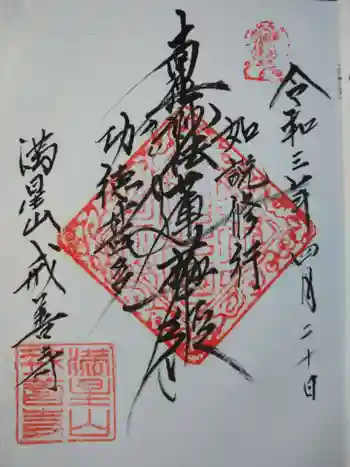 令和三年四月二十日
如説修行
南無妙法蓮華経
功徳甚多
満星山 戒善寺
満星山
戒善寺